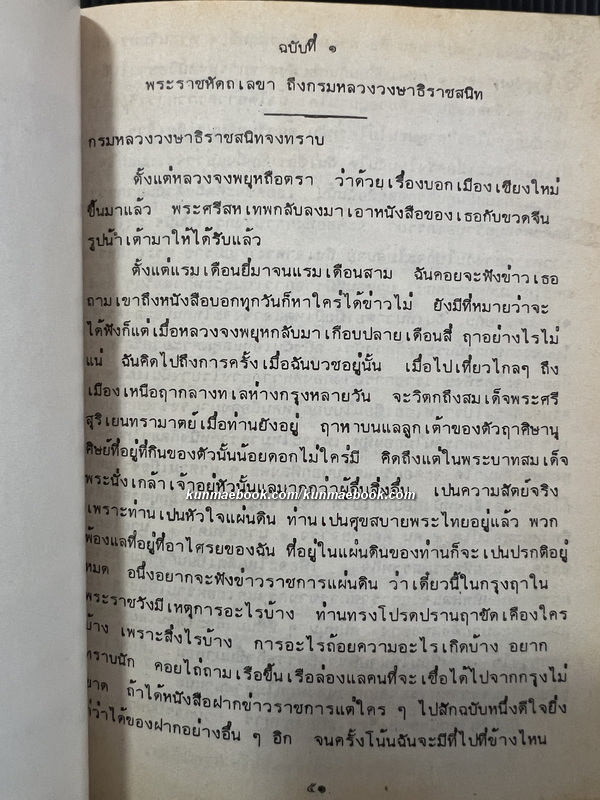 ฉบับที่ ๑
พระราชหัตถเลขา ถึงกรมหลวงวงษาธิราชสนิท
กรมหลวงวงษาธิราชสนิทจงทราบ
ตั้งแต่หลวงจงพยุหถือตรา ว่าด้วยเรื่องบอกเมืองเชียงใหม่
ขึ้นมาแล้ว พระศรีสหเทพกลับลงมาเอาหนังสือของเธอกับขวดจีน
รูปน้ำเต้ามาให้ได้รับแล้ว
ตั้งแต่แรมเดือนยี่มาจนแรมเดือนสาม ฉันคอยจะฟังข่าวเธอ
ถามเขาถึงหนังสือบอกทุกวันก็หาใคร่ได้ข่าวไม่ ยังมีที่หมายว่าจะ
ได้ฟังก็แต่เมื่อหลวงจงพยุหกลับมาเกือบปลายเดือนสี่ ฤาอย่างไรไม่
แน่ ฉันคิดไปถึงการครั้งเมื่อฉันบวชอยู่นั้น เมื่อไปเที่ยวไกลๆ ถึง
เมืองเหนือฤากลางทเลห่างกรุงหลายวัน จะวิตกถึงสมเด็จพระศรี
สุริเยนทรามาตย์เมื่อท่านยังอยู่ ฤาหาบนแลลูกเต้าของตัวฤาศิษานุ
ศิษย์ที่อยู่ที่กินของตัวนั้นน้อยดอกไม่ใคร่มี คิดถึงแต่ในพระบาทสมเด็จ
พระนั่งเกล้าเจ้าอยู่หัวนั้นแลมากกว่าผู้อื่นสิ่งอื่น เปนความสัตย์จริง
kunmaebook.com/kunmaebook.com
เพราะท่านเปนหัวใจแผ่นดิน ท่านเปนศุขสบายพระไทยอยู่แล้ว พวก
พ้องแลที่อยู่ที่อาไศรยของฉัน ที่อยู่ในแผ่นดินของท่านก็จะเปนปรกติอยู่
หมด อนึ่งอยากจะฟังข่าวราชการแผ่นดิน ว่าเดี๋ยวนี้ในกรุงฤาใน
พระราชวังมีเหตุการอะไรบ้าง ท่านทรงโปรดปรานฤาขัดเคืองใคร
บ้าง เพราะสิ่งไรบ้าง การอะไรถ้อยความอะไรเกิดบ้าง อยาก
ทราบนัก คอยไถ่ถามเรือขึ้นเรือล่องแลคนที่จะเชื่อได้ไปจากกรุงไม่
ขาด ถ้าได้หนังสือฝากข่าวราชการแต่ใคร ๆ ไปสักฉบับหนึ่งดีใจยิ่ง
กว่าได้ของฝากอย่างอื่น ๆ อีก จนครั้งโน้นฉันจะมีที่ไปที่ข้างไหน
๕๑